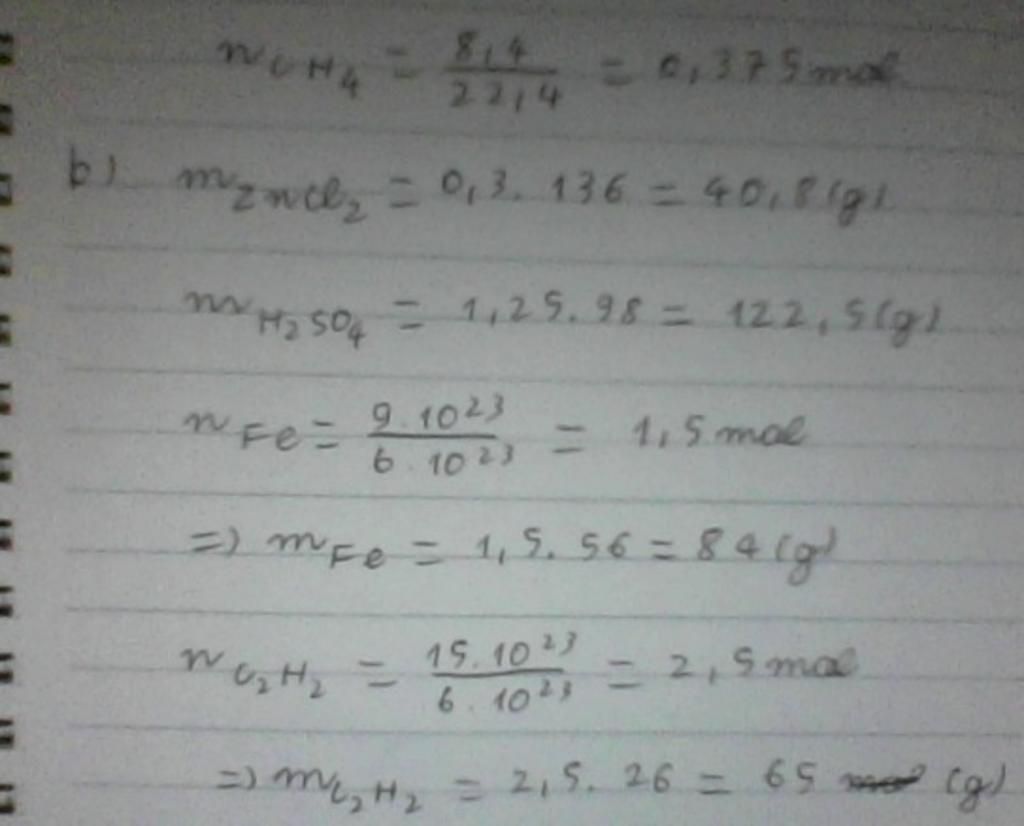 n CH4 = 8,4/22,4 = 0,375 mol
b) m ZnCl2 = 0,3. 136 = 40,8 (g)
m H2SO4 = 1,25. 98 = 122,5 (g)
n Fe = 9.10^23/6.10^23 = 1,5 mol
=> m Fe = 1,5. 56 = 84 (g)
n C2H2 = 15.10^23/6.10^23 = 2,5 mol
=> m C2H2 = 2,5. 26 = 65 (g)